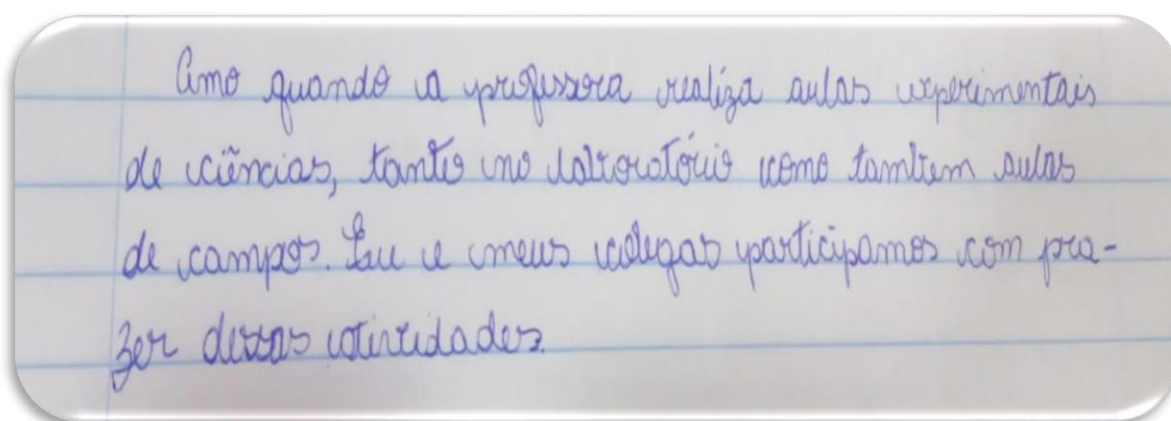 Amo quando a professora realiza aulas experimentais
de ciências, tanto no laboratório como tambem aulas
de campos. Eu e meus colegas participamos com pra-
zer dessas atividades.